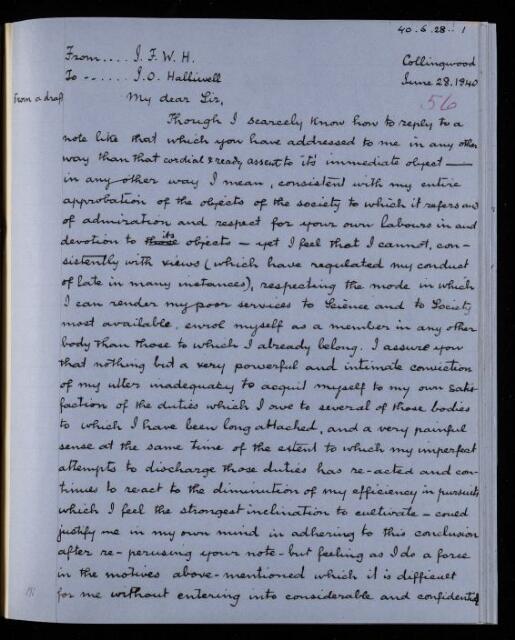 40.6.28..1
From.... J. F. W. H.
Collingwood
To ...... J. O. Halliwell
June 28. 1940
56
From a draft
My dear Sir,
Though I scarcely know how to reply to a
note like that which you have addressed to me in any other
way than that cordial & ready assent to its immediate object —
in any other way I mean, consistent with my entire
approbation of the objects of the society to which it refers and
of admiration and respect for your own labours in and
devotion to its objects — yet I feel that I cannot, con-
sistently with views (which have regulated my conduct
of late in many instances), respecting the mode in which
I can render my poor services to Science and to Society
most available, enrol myself as a member in any other
body than those to which I already belong. I assure you
that nothing but a very powerful and intimate conviction
of my utter inadequacy to acquit myself to my own satis-
faction of the duties which I owe to several of those bodies
to which I have been long attached, and a very painful
sense at the same time of the extent to which my imperfect
attempts to discharge those duties has re-acted and con-
tinues to react to the diminution of my efficiency in pursuits
which I feel the strongest inclination to cultivate — could
justify me in my own mind in adhering to this conclusion
after re-perusing your note - but feeling as I do a force
in the motives above-mentioned which it is difficult
for me without entering into considerable and confidential